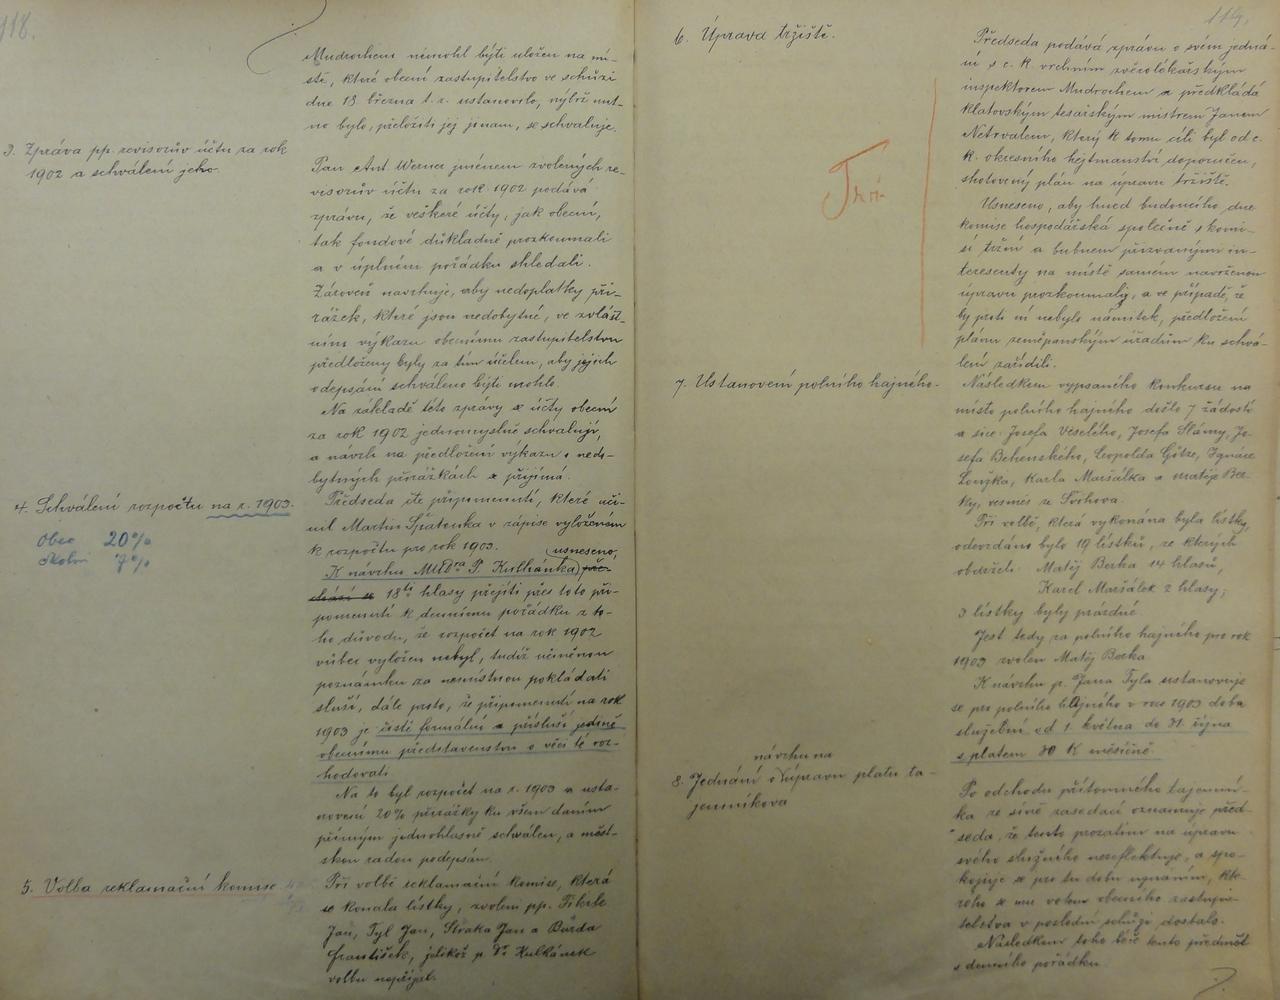 118.
Mudrochem nemohl býti uložen na mí-
stě, které obecní zastupitelstvo ve schůzi
dne 18 března t. r. ustanovilo, nýbrž nut-
no bylo, přeložiti jej jinam, se schvaluje.
3. Zpráva pp. revisorův účtu za rok
1902 a schválení jeho.
Pan Ant. Werner jménem zvolených re-
visorův účtu za rok 1902 podává
zprávu, že veškeré účty, jak obecní,
tak fondové důkladně prozkoumali
a v úplném pořádku shledali.
Zároveň navrhuje, aby nedoplatky při-
rážek, které jsou nedobytné, ve zvlášt-
ním výkazu obecnímu zastupitelstvu
předloženy byly za tím účelem, aby jejich
odepsání schváleno býti mohlo.
Na základě této zprávy se účty obecní
za rok 1902 jednomyslně schvalují,
a návrh na předložení výkazu o nedo-
bytných přirážkách se přijímá.
4. Schválení rozpočtu na r. 1903.
Obec 20%
Školní 7%
Předseda čte připomenutí, které uči-
nil Martin Špatenka v zápise vyloženém
k rozpočtu pro rok 1903.
usneseno,
K návrhu MUDra P. Kulhánka pře-
chází se 18ti hlasy přejíti přes toto při-
pomenutí k dennímu pořádku z to-
ho důvodu, že rozpočet na rok 1902
vůbec vyložen nebyl, tudíž učiněnou
poznámku za nemístnou pokládati
sluší, dále proto, že připomenutí na rok
1903 je čistě formální a přísluší jedině
obecnímu představenstvu o věci té roz-
hodovati
Na to byl rozpočet na r. 1903 a usta-
novení 20% přirážky ku všem daním
přímým jednohlasně schválen, a měst-
skou radou podepsán.
5. Volba reklamační komise.
Při volbě reklamační komise, která
se konala lístky, zvoleni pp. Fiterle
Jan, Tyl Jan, Straka Jan a Burda
František, jelikož p. Dr. Kulhánek
volbu nepřijal.
119.
6. Úprava tržiště.
Předseda podává zprávu o svém jedná-
ní s c. k. vrchním zvěrolékařským
inspektorem Mudrochem a předkládá
klatovským tesařským mistrem Janem
Netrvalem, který k tomu cíli byl od c.
k. okresního hejtmanství doporučen,
zhotovený plán na úpravu tržiště.
Usneseno, aby hned budoucího dne
komise hospodářská společně s komi-
sí tržní a bubnem přizvanými in-
teresenty na místě samém navrženou
úpravu prozkoumaly, a ve případě, že
by proti ní nebylo námitek, předložení
plánu zeměpanským úřadům ku schvá-
lení zařídili.
7. Ustanovení polního hajného.
Následkem vypsaného konkursu na
místo polního hajného došlo 7 žádostí
a sice: Josefa Veselého, Josefa Slámy, Jo-
sefa Behenského, Leopolda Götze, Ignáce
Karla Maršálka a Matěje Ber-
ky, vesměs ze Švihova.
Při volbě, která vykonána byla lístky,
odevzdáno bylo 19 lístků, ze kterých
obdrželi: Matěj Berka 14 hlasů,
Karel Maršálek 2 hlasy;
3 lístky byly prázdné.
Jest tedy za polního hajného pro rok
1903 zvolen Matěj Berka
K návrhu p. Jana Tyla ustanovuje
se pro polního hajného v roce 1903 doba
služební od 1. května do 31. října
s platem 30 K měsíčně.
návrhu na
8. Jednání o úpravu platu ta-
jemníkova
Po odchodu přítomného tajemní-
ka ze síně zasedací oznamuje před-
seda, že tento prozatím na úpravu
svého služného nereflektuje, a spo-
kojuje se pro tu dobu uznáním, kte-
rého se mu votem obecního zastupi-
telstva v poslední schůzi dostalo.
Následkem toho béře tento předmět
s denního pořádku.